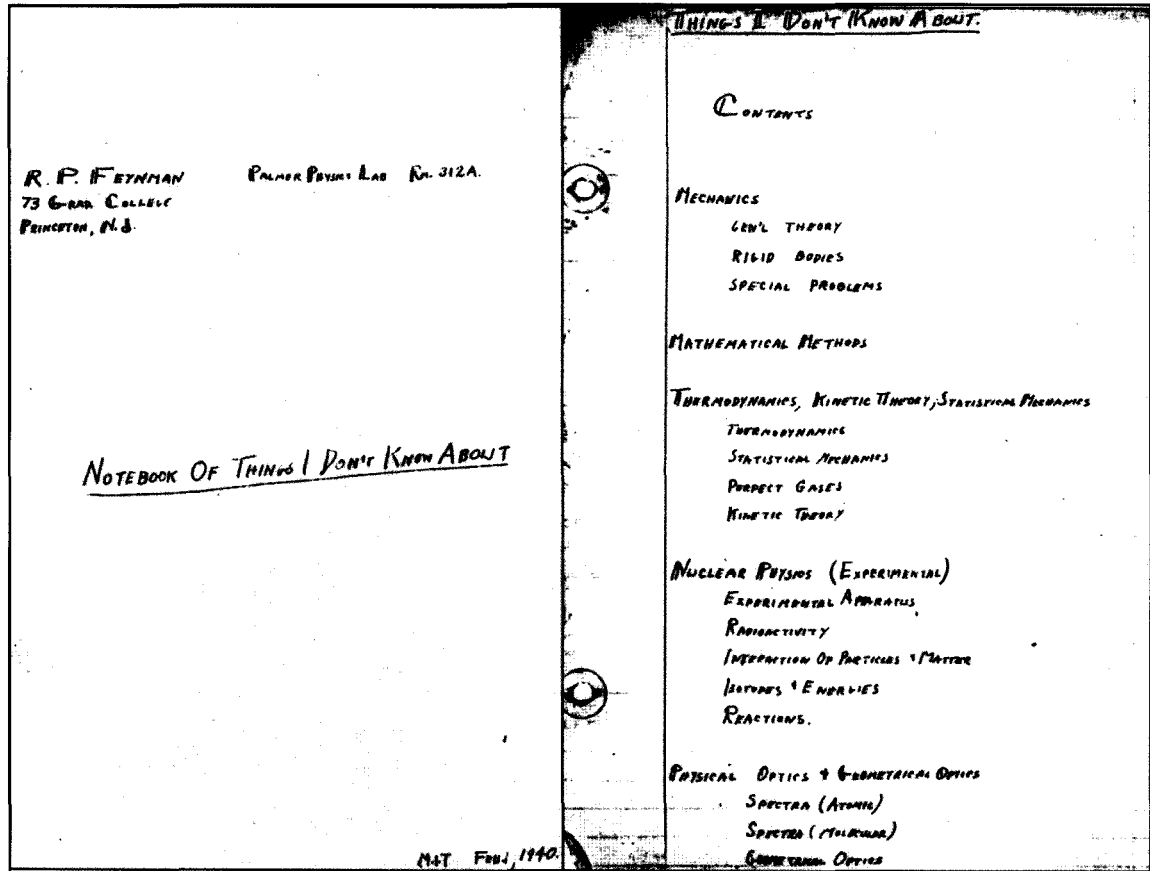 R. P. FEYNMAN PALMER PHYSICS LAB RM. 312A.
73 GRAD COLLEGE
PRINCETON, N.J.
NOTEBOOK OF THINGS I DON'T KNOW ABOUT
1940.
THINGS I DON'T KNOW ABOUT.
CONTENTS
MECHANICS
GEN'L THEORY
RIGID BODIES
SPECIAL PROBLEMS
MATHEMATICAL METHODS
THERMODYNAMICS, KINETIC THEORY, STATISTICAL MECHANICS
THERMODYNAMICS
STATISTICAL MECHANICS
PERFECT GASES
KINETIC THEORY
NUCLEAR PHYSICS (EXPERIMENTAL)
EXPERIMENTAL APPARATUS
RADIOACTIVITY
INTERACTION OF PARTICLES + MATTER
ISOTOPES + ENERGIES
REACTIONS.
PHYSICAL OPTICS + GEOMETRICAL OPTICS
SPECTRA (ATOMIC)
SPECTRA (MOLECULAR)
GEOMETRICAL OPTICS